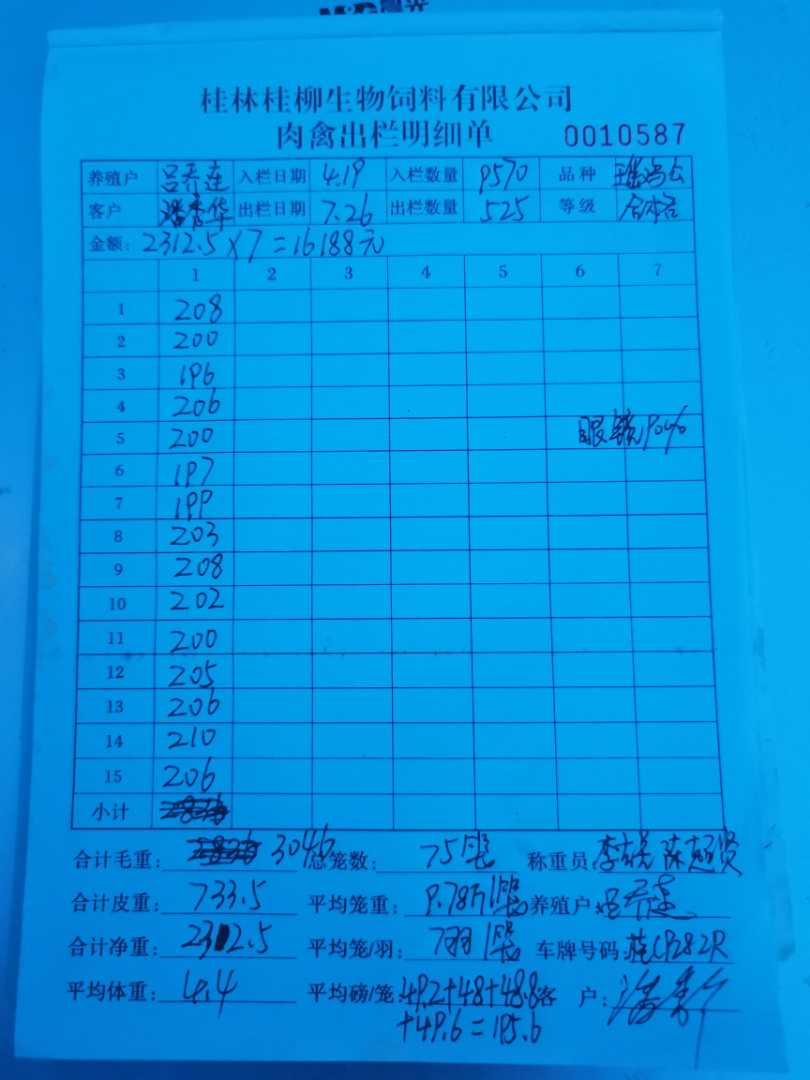 桂林桂柳生物饲料有限公司
肉禽出栏明细单 0010587
养殖户 吕乔连 入栏日期 4.19 入栏数量 9570 品种
客户 潘秀华 出栏日期 7.26 出栏数量 525 等级 合格
金额: 2312.5×7=16188元
1 2 3 4 5 6 7
1 208
2 200
3 196
4 206
5 200 眼镜90%
6 197
7 199
8 203
9 208
10 202
11 200
12 205
13 206
14 210
15 206
小计
合计毛重: 3046 总笼数: 75笼 称重员: 李 陈超贤
合计皮重: 733.5 平均笼重: 9.78斤/笼 养殖户: 吕乔连
合计净重: 2312.5 平均笼/羽: 7羽/笼 车牌号码: 桂CP282R
平均体重: 4.4 平均磅/笼: 49.2+48+48.8 客 户:
+49.6=195.6